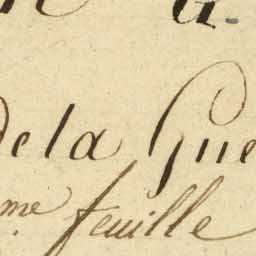 de la Gue
me feuille